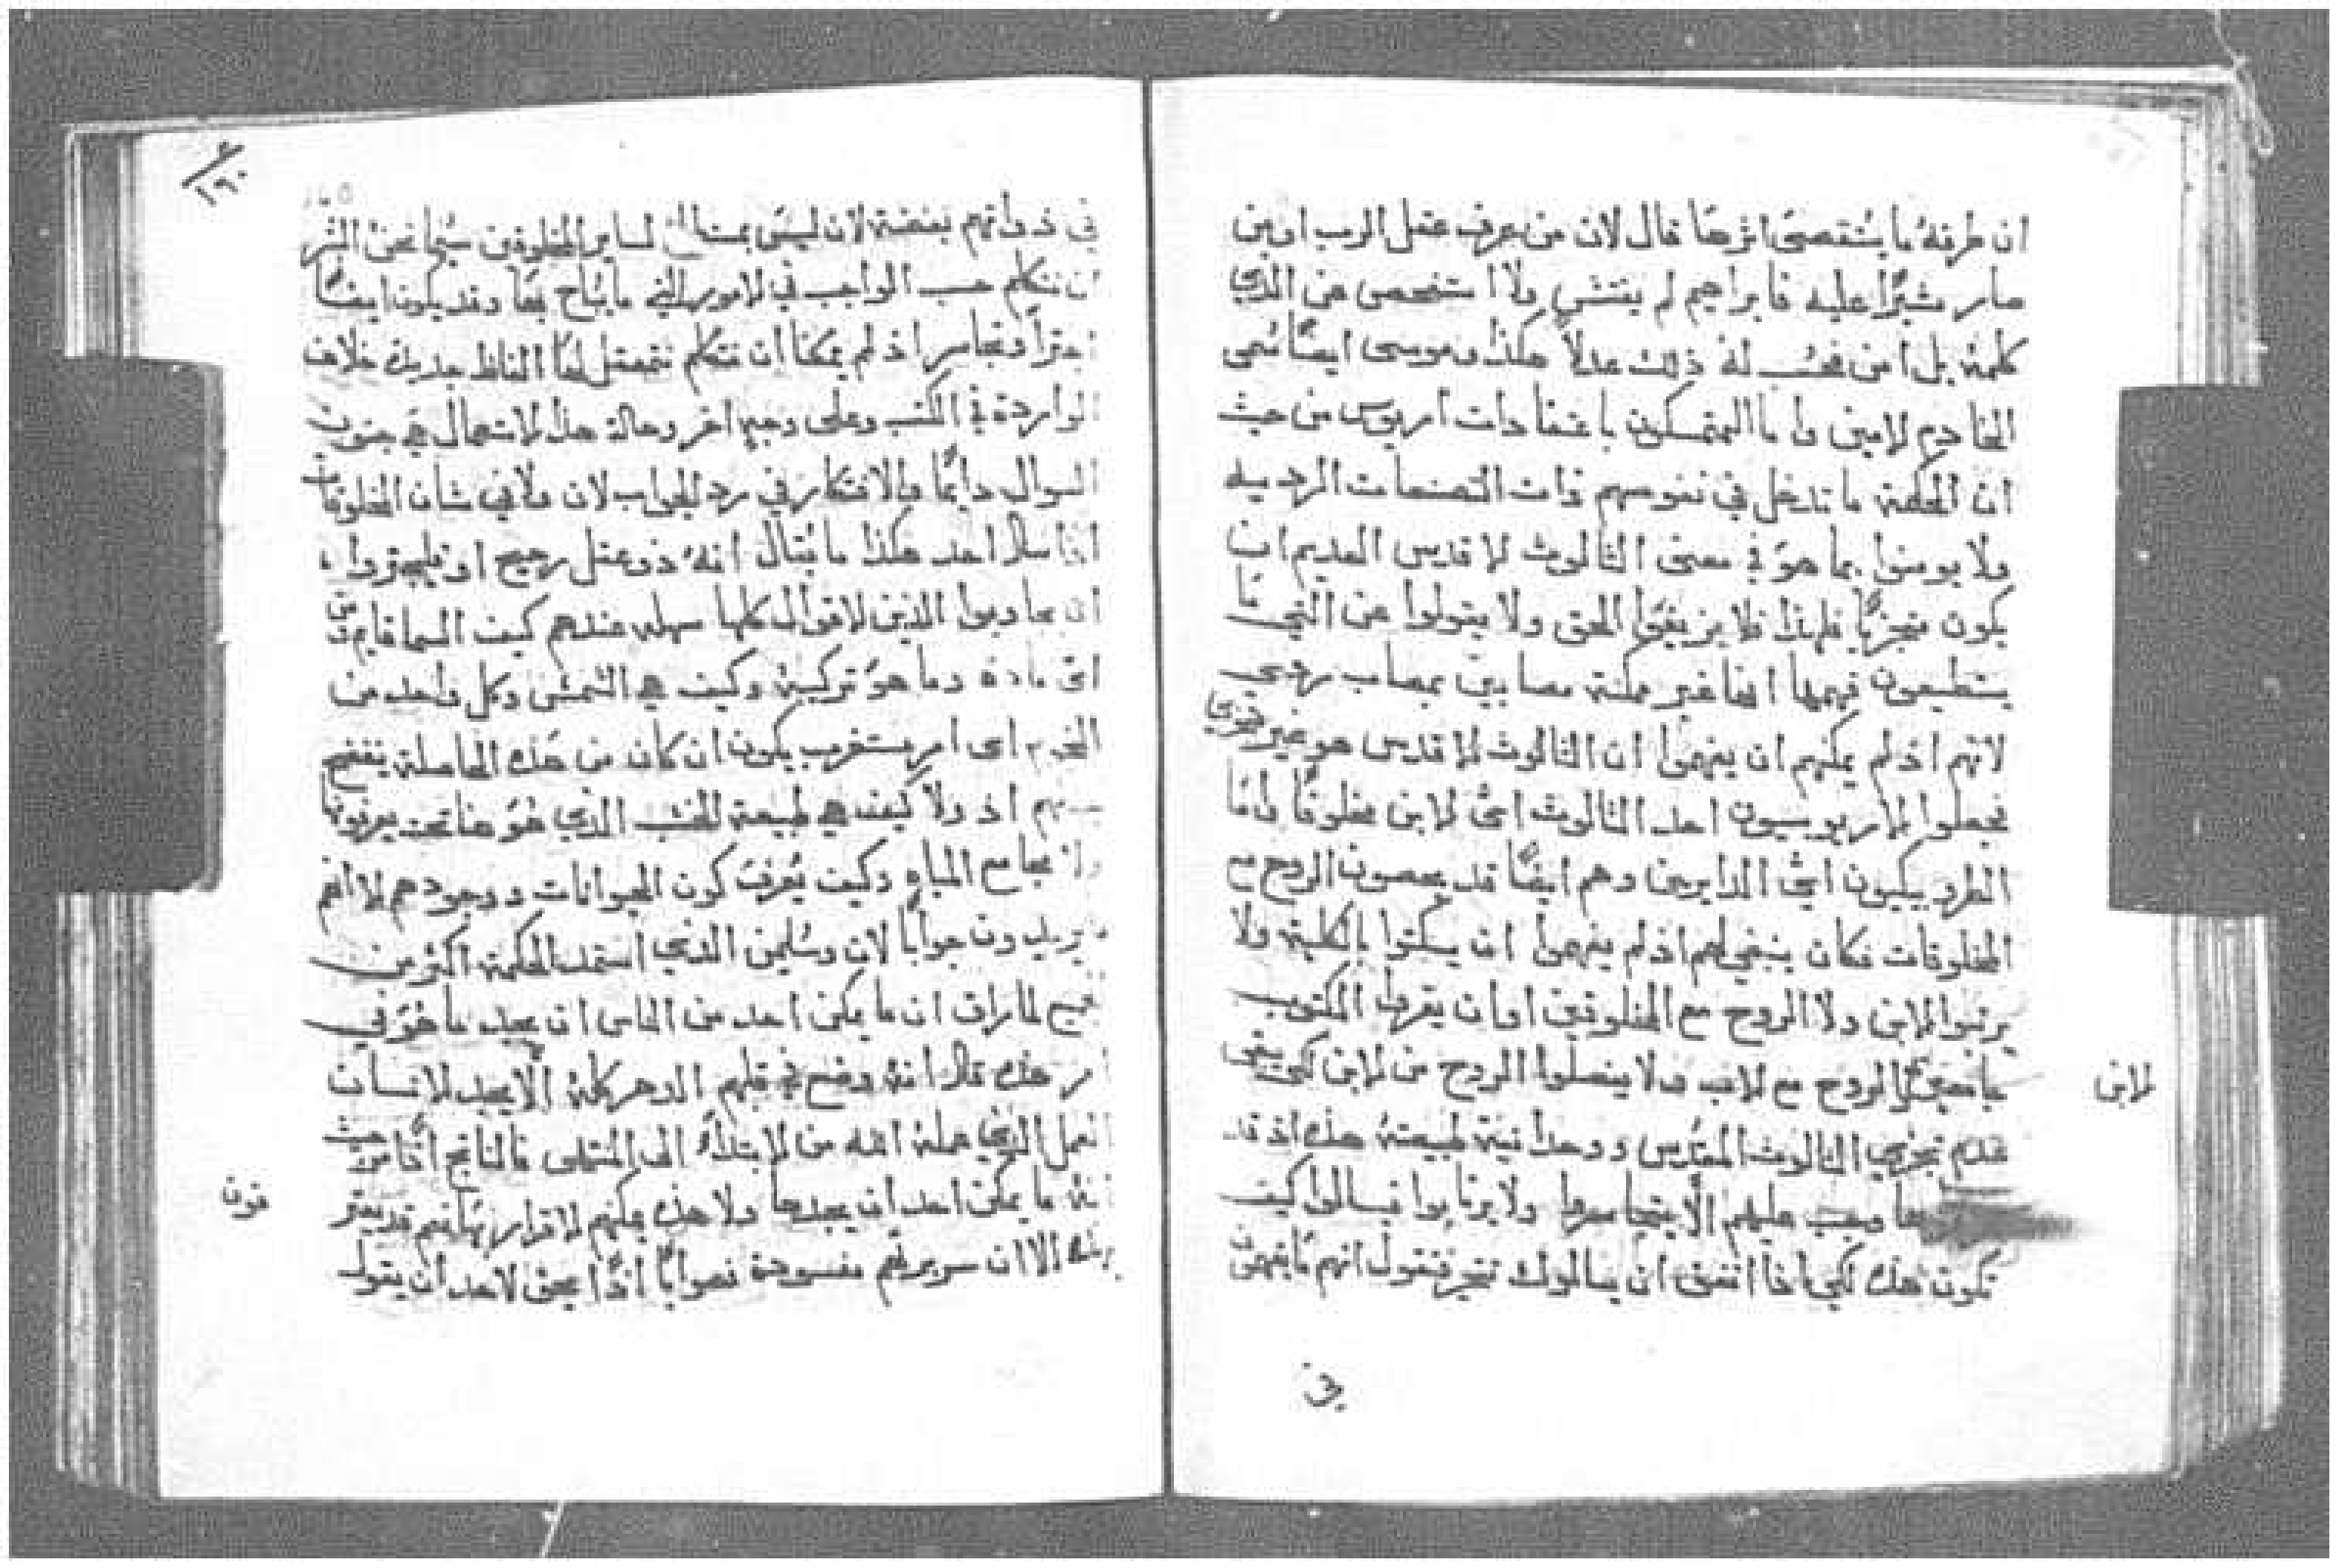 ان طرقه ما يستقصى اثرها قال لان من عرف عقل الرب او من
صار مشيرًا عليه فابراهيم لم يفتش ولا استفحص عن الذي
كلمه بل امن فحسب له ذلك عدلاً هكذا وموسى ايضًا سمى
الخادم الامين واما المتمسكون باعتقادات اريوس من حيث
ان الحكمة ما تدخل في نفوسهم ذات التصنعات الرديه
ولا يومنوا بما هو في معنى الثالوث الاقدس العديم ان
يكون متجزيًا فلهذا فلا يزيفوا الحق ولا يقولوا عن التي ما
يستطيعون فهمها انها غير ممكنة مصابين بمصاب ردى
لانهم اذ لم يمكنهم ان يفهموا ان الثالوث الاقدس هو غير متجزي
فجعلوا الاريوسيون احد الثالوث اعني الابن مخلوقًا واما
الطروبيكيون اعني الدايرين وهم ايضًا قد يحصون الروح مع
المخلوقات فكان ينبغي لهم اذ لم يفهموا ان يسكتوا بالكلية ولا
يرتبوا الابن ولا الروح مع المخلوقين او ان يعرفوا المكتوب
الروح مع الاب ولا يفصلوا الروح من الابن لكي يبقى
الابن
عدم تجزي الثالوث المقدس ووحدانية طبيعته هذه اذ قد
وجب عليهم الّا يتجاسروا ولا يرتابوا فيسالوا كيف
تكون هذه لكي اذا اتفق ان يسالوك نقول انهم ما يفهمون
في
١٩٠
في ذواتهم بغضة لان ليس بمباح لساير المخلوقين سيما نحن البشر
ان نتكلم حسب الواجب في الامور التي ما يباح بها وقد يكون ايضًا
اجترأ وتجاسر اذ لم يمكنا ان نتكلم فنعمل لها الفاظ جديدة خلاف
الواردة في الكتب وعلى وجه اخر وحالة هذا الاستعمال في جنون
السوال دايمًا والافتكار في رد الجواب لان ولا في شان المخلوقات
اذا سال احد هكذا ما يقال انه ذو عقل رجيح او فليجتروا
ان يجاوبوا الذين الاقوال كلها سهله عندهم كيف السما قايم من
اى ماده وما هو تركيبه وكيف هي الشمس وكل واحد من
النجوم اى امر مستغرب يكون ان كان من هذه الحاصلة يفتضح
اذ ولا كيف هي طبيعة الخشب الذي هو هاهنا تحت يعرفونها
ولا مجامع المياه وكيف يُعرف كون الحيوانات ووجودهم الا انهم
يريدون جوابًا لان وسليمن الذي استمد الحكمة اكثر من
الجميع لما راى ان ما يمكن احد من الناس ان يجد ما هو في
امر هذه قال انه وضع في قلبهم الدهر كله الّا يجد الانسان
العمل الذي عمله الله من الابتداء الى المنتهى فالناتج اذًا من حيث
انه ما يمكن احد ان يجدها ولا هذه يمكنهم الاقرار بها نعم قد يعتر
فون
بهذه الا ان سريرتهم مفسودة فصوابًا اذًا يحق لاحد ان يقول